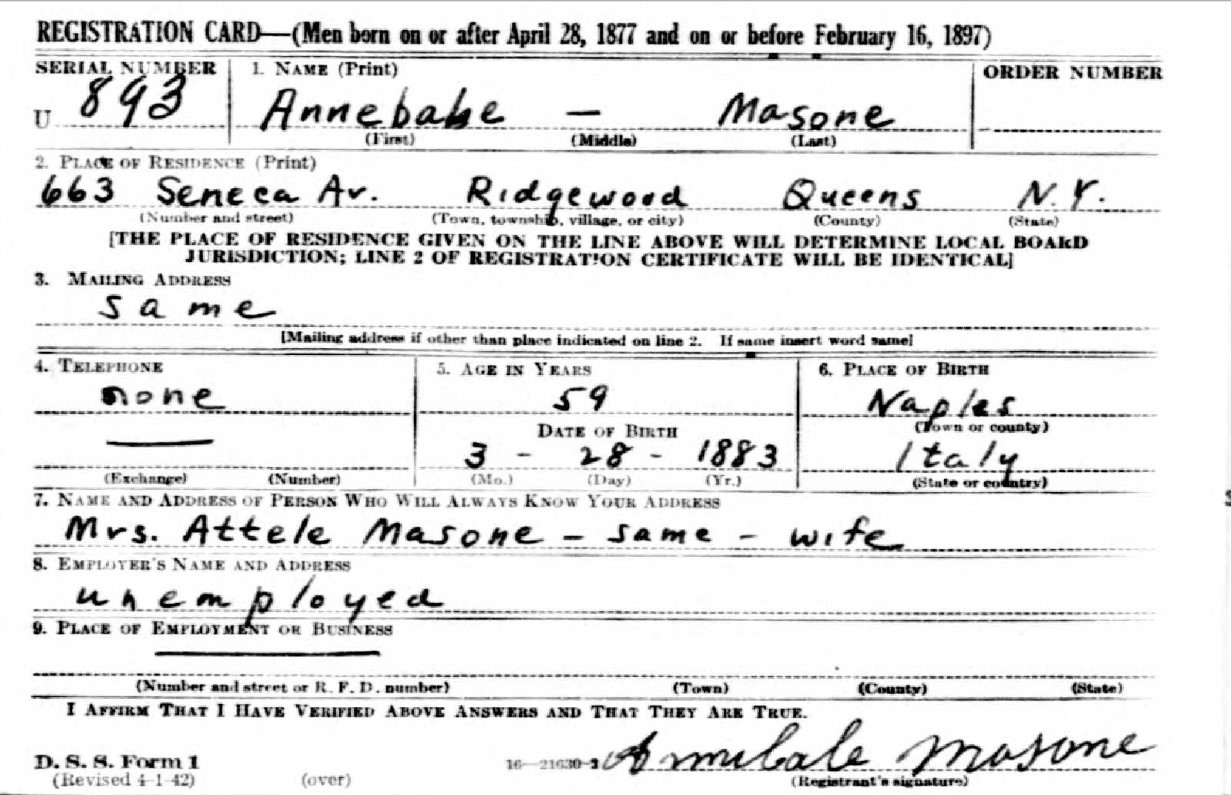 REGISTRATION CARD—(Men born on or after April 28, 1877 and on or before February 16, 1897)
SERIAL NUMBER 1. NAME (Print) ORDER NUMBER
U 893 Annebabe — Masone
(First) (Middle) (Last)
2. PLACE OF RESIDENCE (Print)
663 Seneca Av. Ridgewood Queens N.Y.
(Number and street) (Town, township, village, or city) (County) (State)
[THE PLACE OF RESIDENCE GIVEN ON THE LINE ABOVE WILL DETERMINE LOCAL BOARD
JURISDICTION; LINE 2 OF REGISTRATION CERTIFICATE WILL BE IDENTICAL]
3. MAILING ADDRESS
same
[Mailing address if other than place indicated on line 2. If same insert word same]
4. TELEPHONE 5. AGE IN YEARS 6. PLACE OF BIRTH
none 59 Naples
DATE OF BIRTH (Town or county)
3 - 28 - 1883 Italy
(Exchange) (Number) (Mo.) (Day) (Yr.) (State or country)
7. NAME AND ADDRESS OF PERSON WHO WILL ALWAYS KNOW YOUR ADDRESS
Mrs. Attele Masone - same - wife
8. EMPLOYER'S NAME AND ADDRESS
unemployed
9. PLACE OF EMPLOYMENT OR BUSINESS
(Number and street or R. F. D. number) (Town) (County) (State)
I AFFIRM THAT I HAVE VERIFIED ABOVE ANSWERS AND THAT THEY ARE TRUE.
D. S. S. Form 1 16—21630-2 Annibale Masone
(Revised 4-1-42) (over) (Registrant's signature)